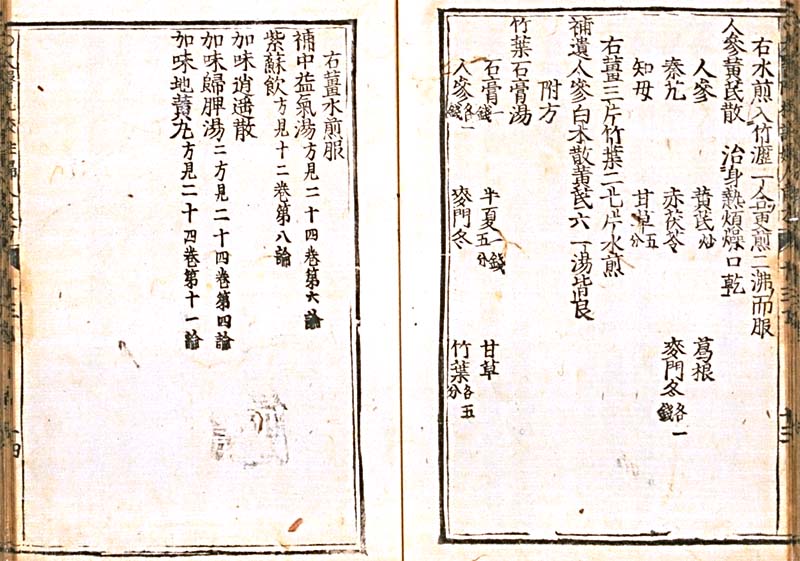 右水煎入竹瀝一煎二沸而服
人參黃芪散 治身熱煩燥口乾
人參 黃芪炒 葛根
秦艽 赤茯苓 麥門冬各一錢
知母 甘草五分
右薑三片竹葉二七片水煎
補遺人參白朮散黃芪六一湯皆良
附方
竹葉石膏湯
石膏一錢 半夏一錢五分 甘草
人參各一錢 麥門冬 竹葉各五分
右薑水煎服
補中益氣湯方見二十四卷第六論
紫蘇飲方見十二卷第八論
加味逍遙散
加味歸脾湯二方見二十四卷第四論
加味地黃丸方見二十四卷第十一論